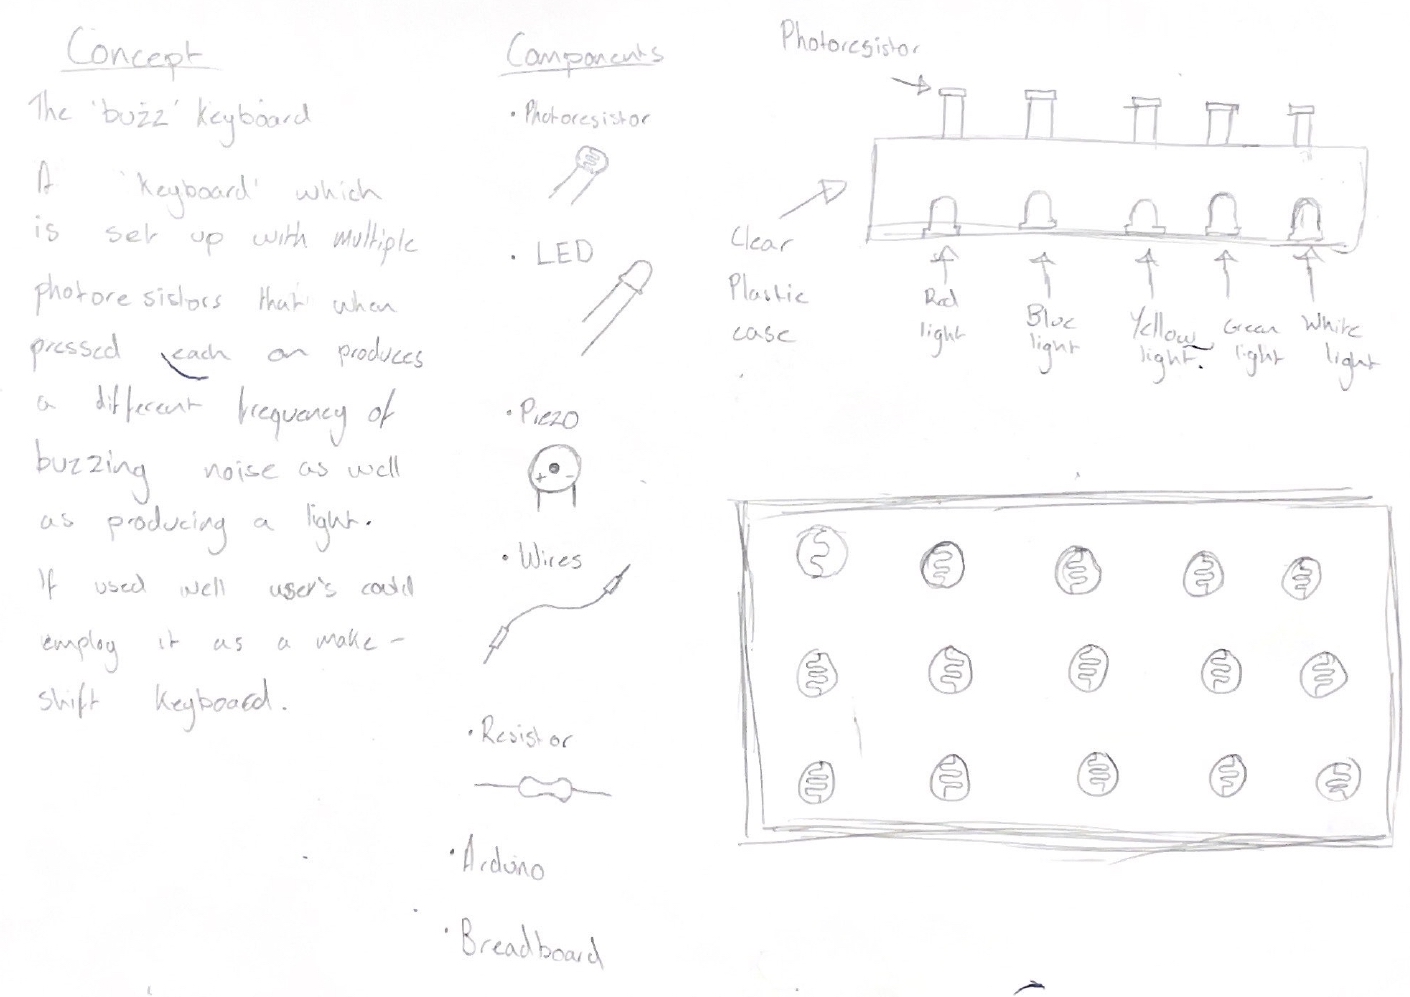 Concept
The 'buzz' keyboard
A 'keyboard' which
is set up with multiple
photoresistors that when
pressed each on produces
a different frequency of
buzzing noise as well
as producing a light.
If used well user's could
employ it as a make-
shift keyboard.
Components
• Photoresistor
• LED
• Piezo
+ -
• Wires
• Resistor
• Arduino
• Breadboard
Photoresistor
Clear
Plastic
case
Red
light
Blue
light
Yellow
light.
Green
light
White
light